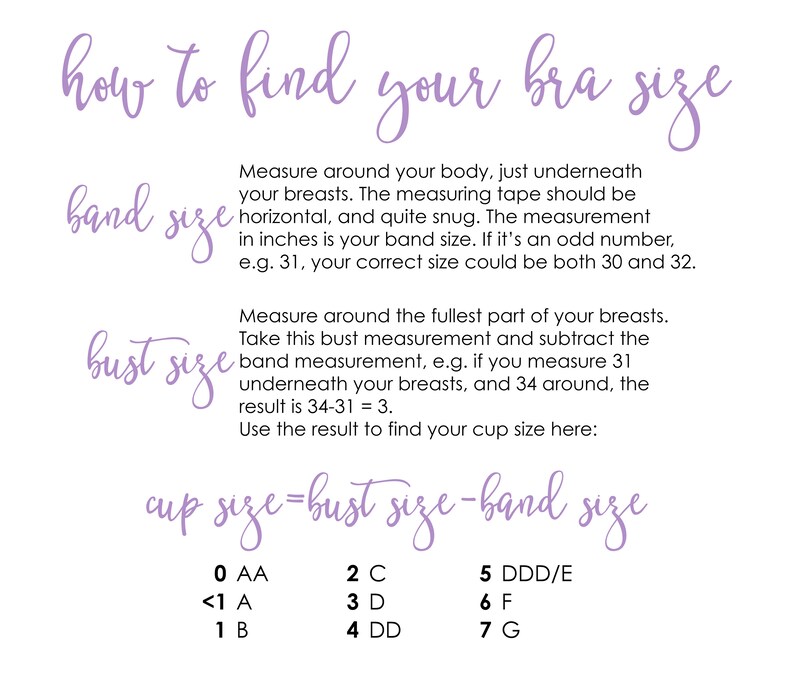 how to find your bra size
band size
Measure around your body, just underneath
your breasts. The measuring tape should be
horizontal, and quite snug. The measurement
in inches is your band size. If it's an odd number,
e.g. 31, your correct size could be both 30 and 32.
bust size
Measure around the fullest part of your breasts.
Take this bust measurement and subtract the
band measurement, e.g. if you measure 31
underneath your breasts, and 34 around, the
result is 34-31 = 3.
Use the result to find your cup size here:
cup size=bust size-band size
0 AA
<1 A
1 B
2 C
3 D
4 DD
5 DDD/E
6 F
7 G